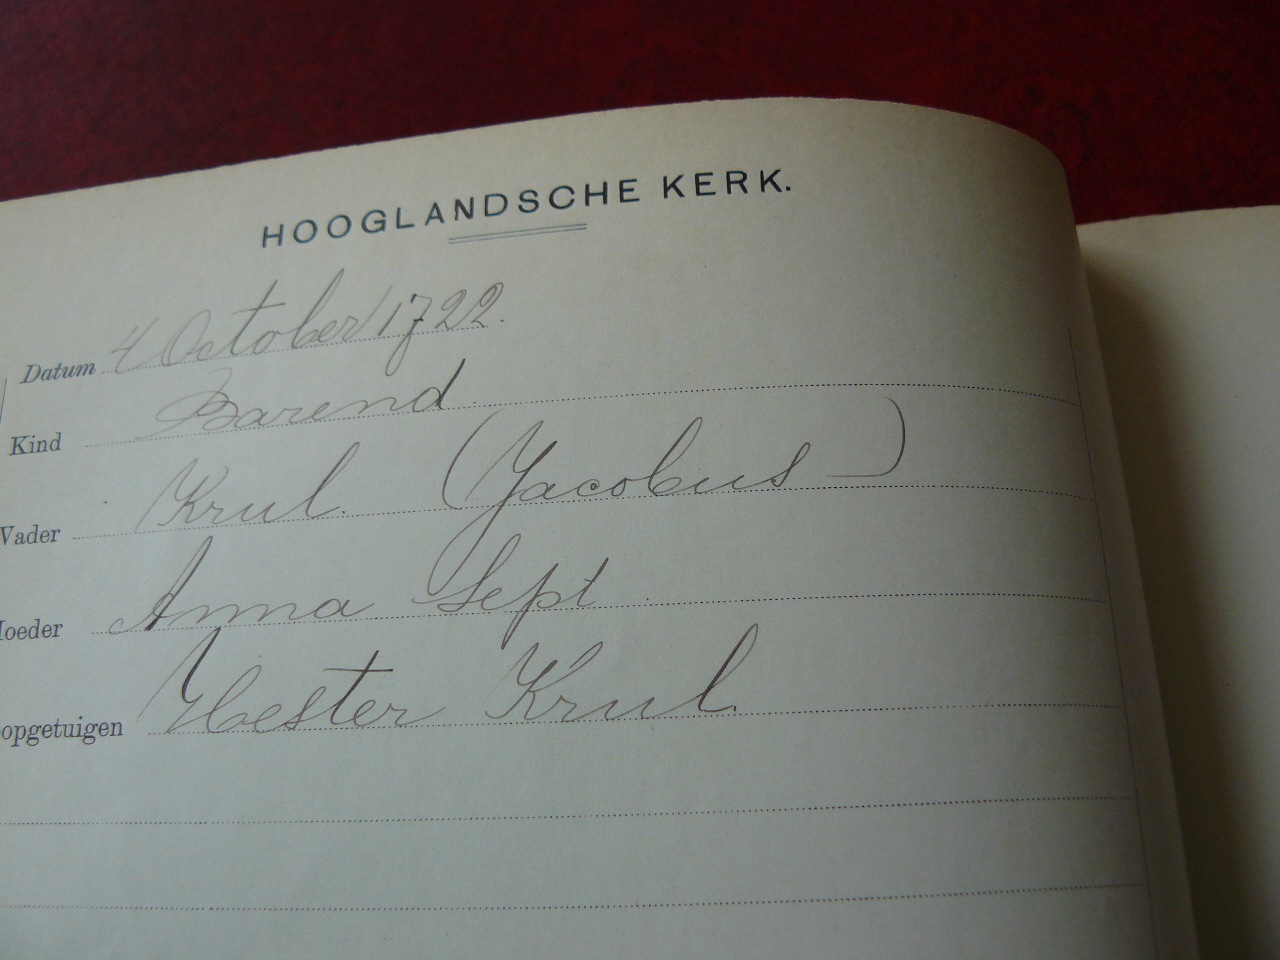 HOOGLANDSCHE KERK.
Datum 4 October 1722.
Kind Barend
Vader Krul. (Jacobus)
Moeder Anna Sept
opgetuigen Hester Krul.